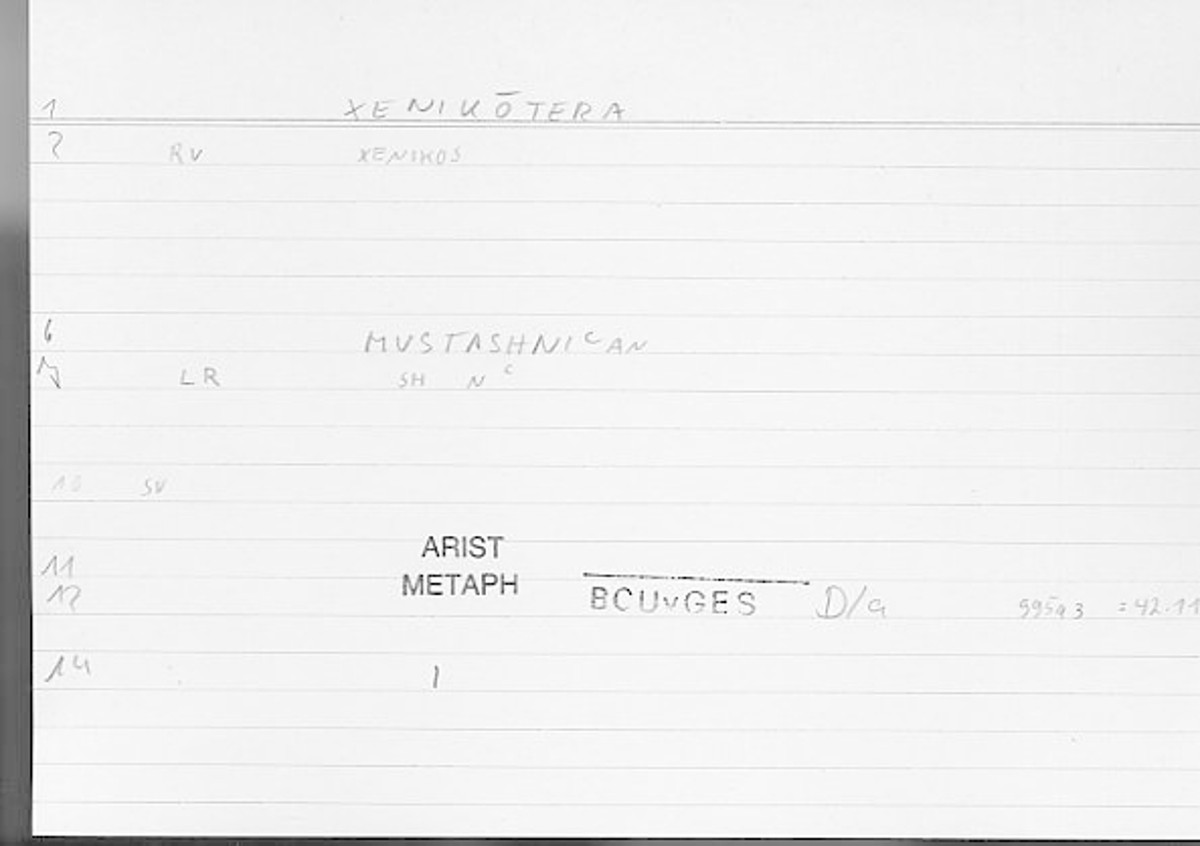 1 XENIKŌTERA
2 RV XENIKOS
6 MUSTASHNIᶜAN
7 LR SH N ᶜ
10 SV
ARIST
11 METAPH
12 BOUYGES D/a 995a3 = 42.11
14 1